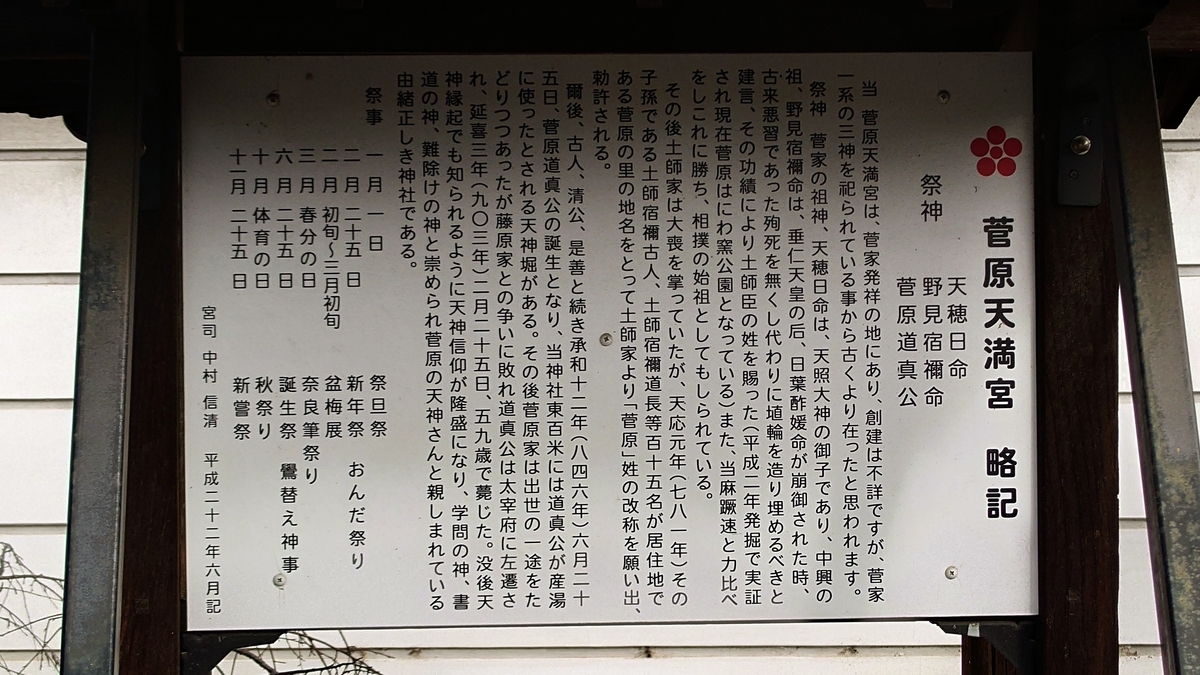 菅原天満宮 略記
祭神
天穂日命
野見宿禰命
菅原道真公
当 菅原天満宮は、菅家発祥の地にあり、創建は不詳ですが、菅家
一系の三神を祀られている事から古くより在ったと思われます。
祭神 菅家の祖神、天穂日命は、天照大神の御子であり、中興の
祖、野見宿禰命は、垂仁天皇の后、日葉酢媛命が崩御された時、
古来悪習であった殉死を無くし代わりに埴輪を造り埋めるべきと
建言、その功績により土師臣の姓を賜った(平成二年発掘で実証
され現在菅原はにわ窯公園となっている)また、当麻蹶速と力比べ
をしこれに勝ち、相撲の始祖としてもしられている。
その後土師家は大喪を掌っていたが、天応元年(七八一年)その
子孫である土師宿禰古人、土師宿禰道長等百十五名が居住地で
ある菅原の里の地名をとって土師家より「菅原」姓の改称を願い出、
勅許される。
爾後、古人、清公、是善と続き承和十二年(八四六年)六月二十
五日、菅原道真公の誕生となり、当神社東百米には道真公が産湯
に使ったとされる天神堀がある。その後菅原家は出世の一途をた
どりつつあったが藤原家との争いに敗れ道真公は太宰府に左遷さ
れ、延喜三年(九〇三年)二月二十五日、五九歳で薨じた。没後天
神縁起でも知られるように天神信仰が隆盛になり、学問の神、書
道の神、難除けの神と崇められ菅原の天神さんと親しまれている
由緒正しき神社である。
祭事 一月 一日 祭旦祭
二月 二十五日 新年祭 おんだ祭り
二月 初旬〜三月初旬 盆梅展
三月 春分の日 奈良筆祭り
六月 二十五日 誕生祭 鷽替え神事
十月 体育の日 秋祭り
十一月 二十五日 新嘗祭
宮司 中村 信清 平成二十二年六月記